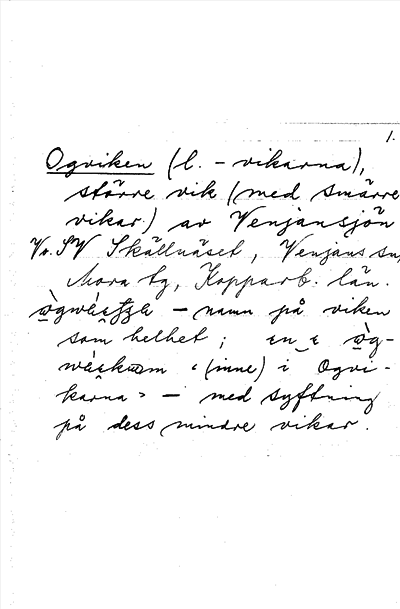 1.
Ogviken (l. - vikarna),
större vik (med smärre
vikar) av Venjansjön
V. SV Skällnäset, Venjans sn,
Mora tg, Kopparb. län.
— namn på viken
som helhet; en
‹ (inne) i Ogvi-
karna › — med syftning
på dess mindre vikar.